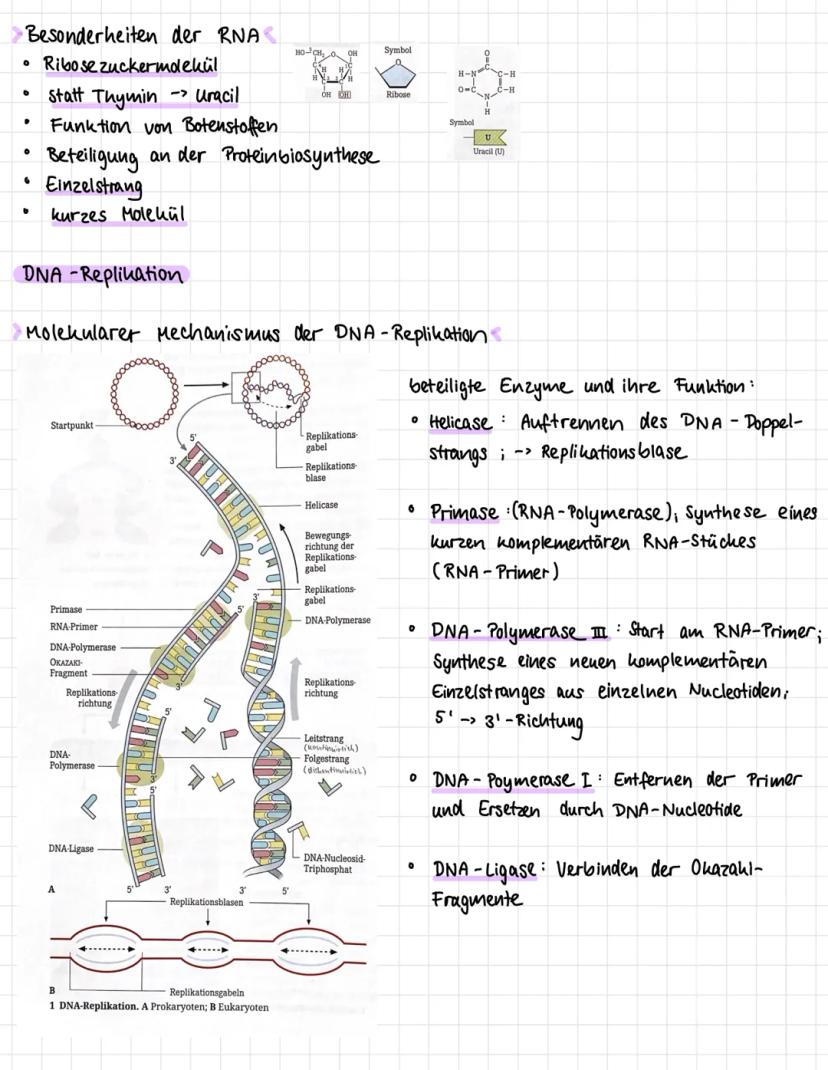 Besonderheiten der RNA
• Ribosezuckermolekül
• statt Thymin -> Uracil
• Funktion von Botenstoffen
• Beteiligung an der Proteinbiosynthese
• Einzelstrang
• kurzes Molekül
HO-5CH₂ O OH
H H
H H
OH OH
Symbol
Ribose
O
C
H-N C-H
O=C C-H
N
H
Symbol
U
Uracil (U)
DNA-Replikation
Molekularer Mechanismus der DNA-Replikation
Startpunkt
Replikations-
gabel
Replikations-
blase
5'
3'
Helicase
Bewegungs-
richtung der
Replikations-
gabel
Replikations-
gabel
3'
5'
DNA-Polymerase
Primase
RNA-Primer
DNA-Polymerase
OKAZAKI-
Fragment
3'
Replikations-
richtung
Replikations-
richtung
5'
Leitstrang
(kontinuierlich)
Folgestrang
(diskontinuierlich)
DNA-
Polymerase
3'
5'
DNA-Ligase
DNA-Nucleosid-
Triphosphat
A 5' 3' 3' 5'
Replikationsblasen
B Replikationsgabeln
1 DNA-Replikation. A Prokaryoten; B Eukaryoten
beteiligte Enzyme und ihre Funktion:
• Helicase: Auftrennen des DNA-Doppel-
strangs ; -> Replikationsblase
• Primase:(RNA-Polymerase); Synthese eines
kurzen komplementären RNA-Stückes
(RNA-Primer)
• DNA-Polymerase III: Start am RNA-Primer;
Synthese eines neuen komplementären
Einzelstranges aus einzelnen Nucleotiden;
5' -> 3'-Richtung
• DNA-Poymerase I: Entfernen der Primer
und Ersetzen durch DNA-Nucleotide
• DNA-Ligase: Verbinden der Okazaki-
Fragmente